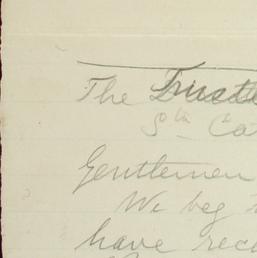 The Truste
Sth Ca
Gentlemen
We beg
have rec